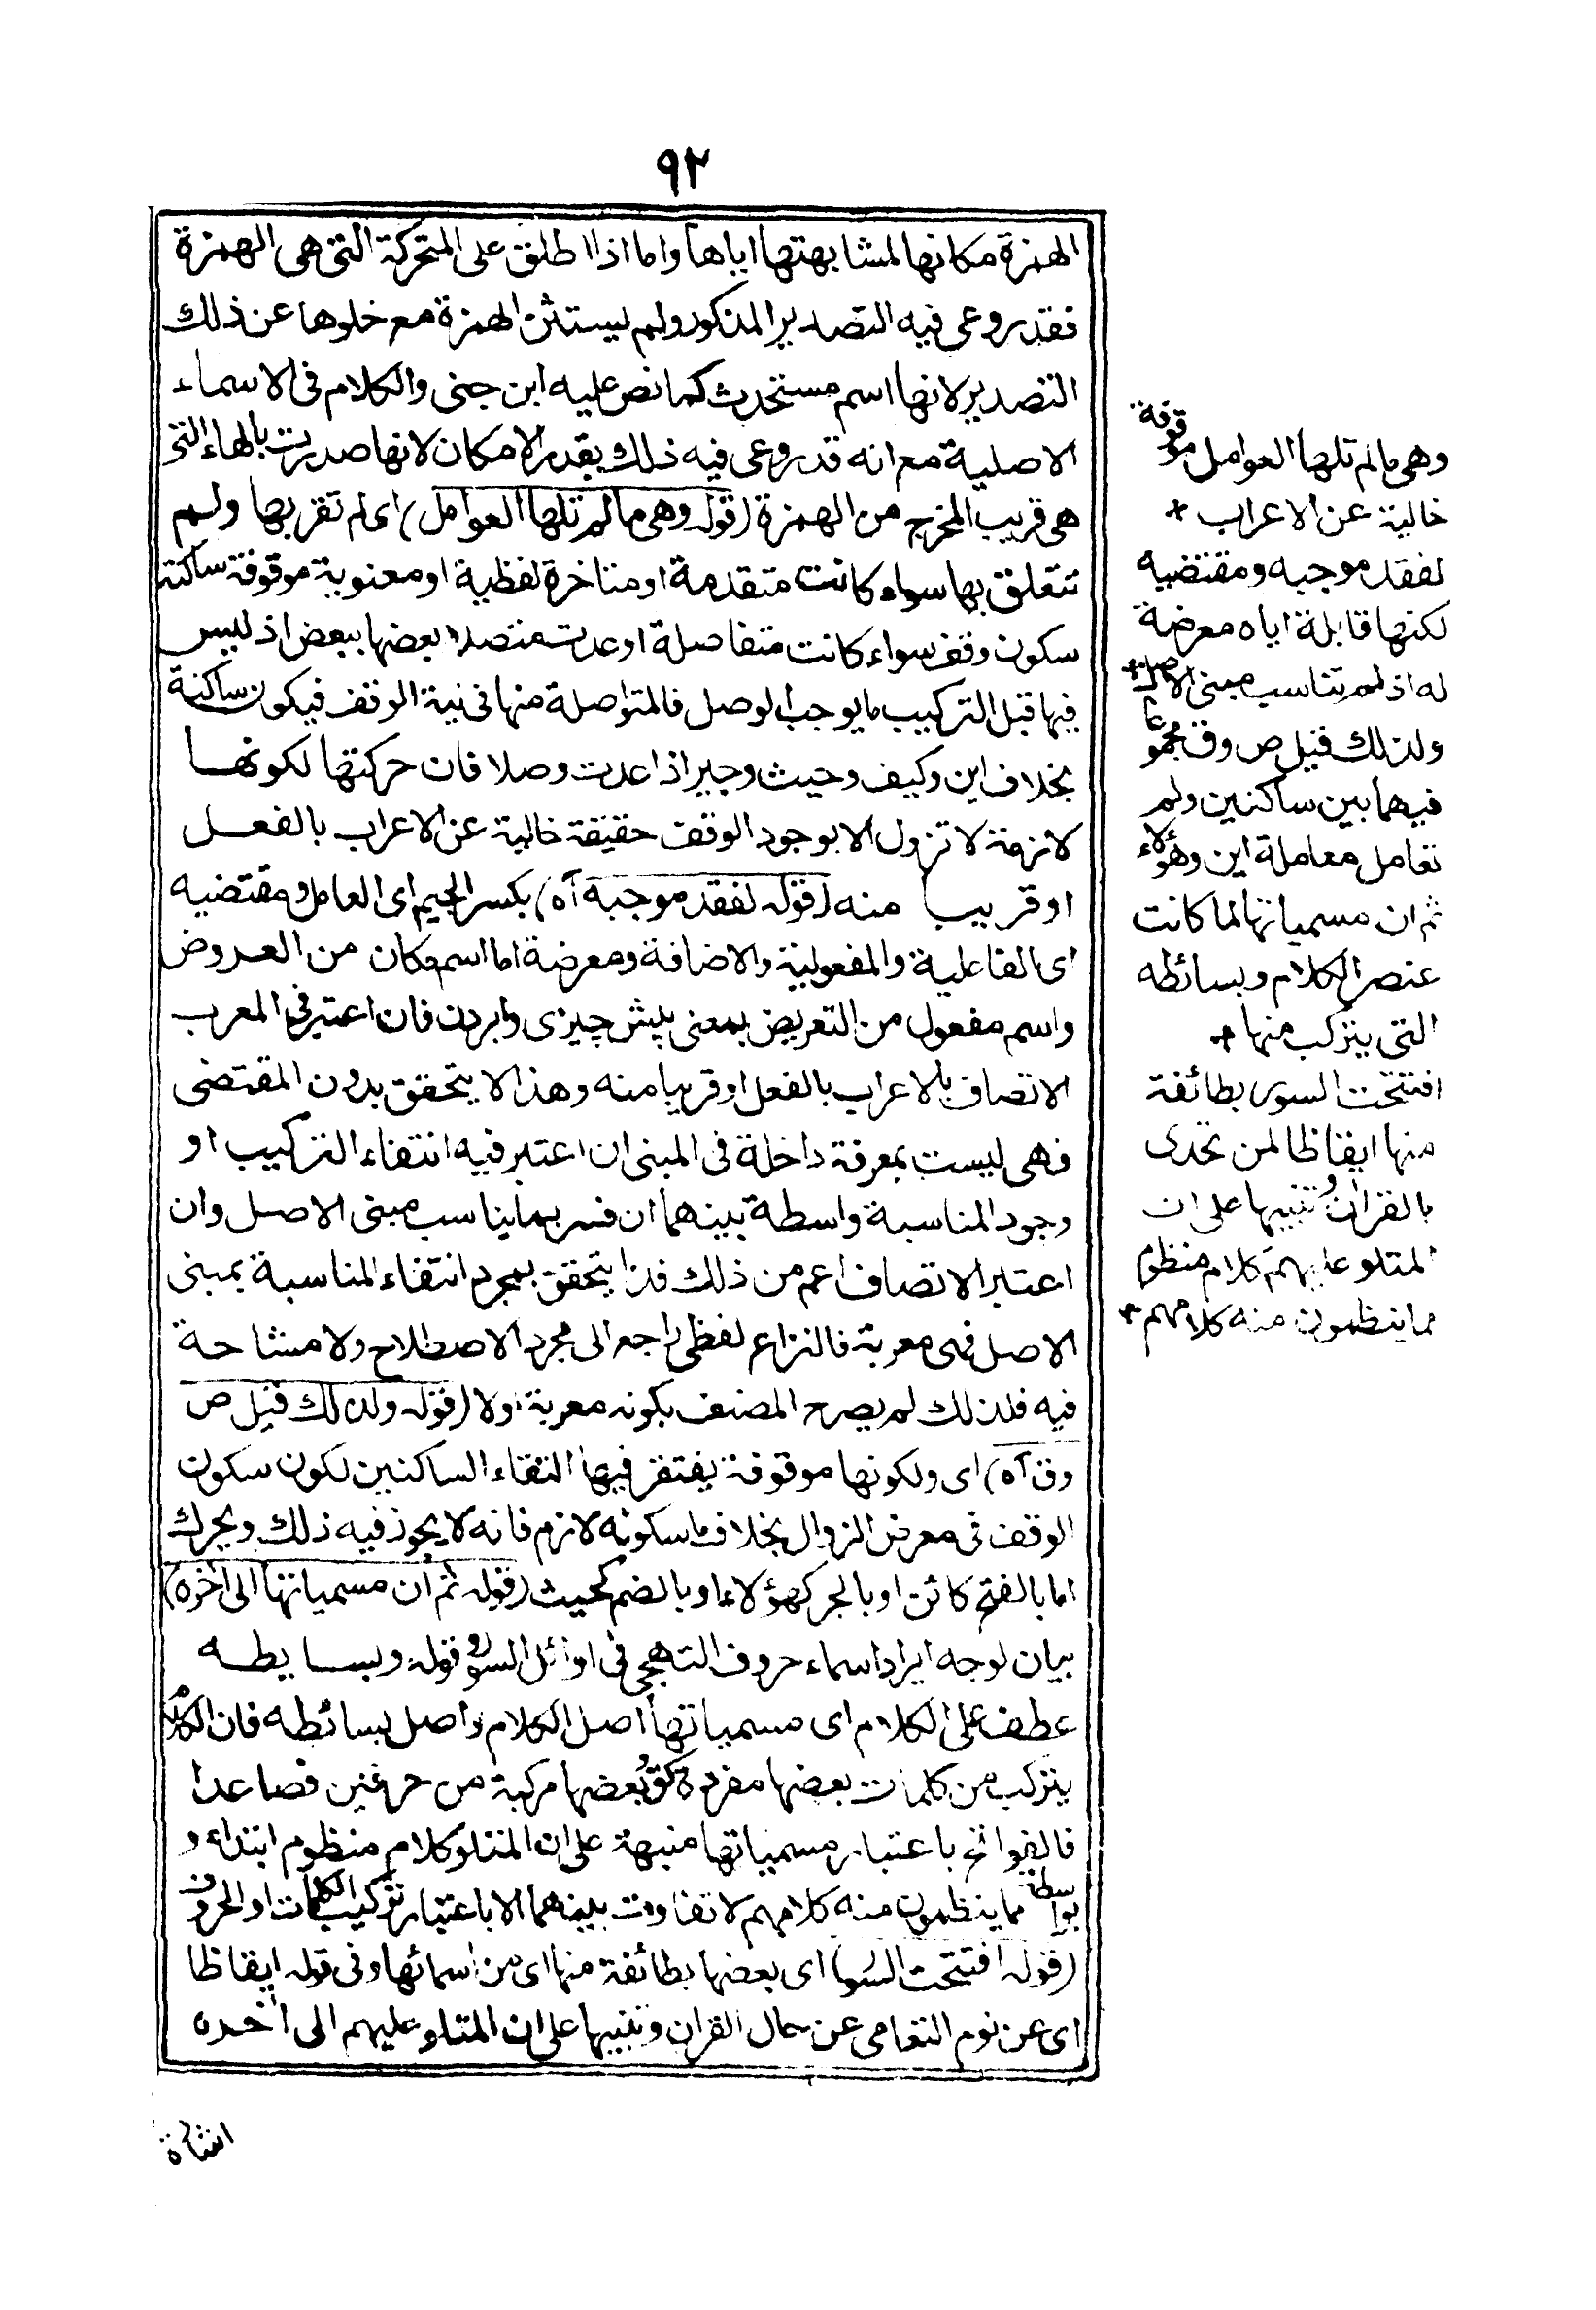 ٩٢
الهمزة مكانها لمشابهتها اياها واما اذا اطلق على المتحركة التى هى الهمزة
فقد روعى فيه التصدير المذكور ولم يستثن الهمزة مع خلوها عن ذلك
التصدير لانها اسم مستحدث كما نص عليه ابن جنى والكلام فى الاسماء
الاصلية مع انه قد روعى فيه ذلك بقدر الامكان لانها صدرت بالهاء التى
هى قريب المخرج من الهمزة (قوله وهى ما لم تلها العوامل) اى لم تقربها ولم
تتعلق بها سواء كانت متقدمة او متاخرة لفظية او معنوية موقوفة ساكنة
سكون وقف سواء كانت متفاصلة او عدت متصلا بعضها ببعض اذ ليس
فيها قبل التركيب ما يوجب الوصل فالمتواصلة منها فى نية الوقف فيكون ساكنة
بخلاف اين وكيف وحيث وجير اذا عدت وصلا فان حركتها لكونها
لازمة لا تزول الا بوجود الوقف حقيقة خالية عن الاعراب بالفعل
او قريبا منه (قوله لفقد موجبه آه) بكسر الجيم اى العامل ومقتضيه
اى الفاعلية والمفعولية والاضافة ومعرضة اما اسم مكان من العروض
واسم مفعول من التعريض بمعنى پيش چيزى وابردن فان اعتبر فى المعرب
الاتصاف بالاعراب بالفعل او قريبا منه وهذا لا يتحقق بدون المقتضى
فهى ليست بمعرفة داخلة فى المبنى ان اعتبر فيه انتفاء التركيب او
وجود المناسبة واسطة بينهما ان فسر بما يناسب مبنى الاصل وان
اعتبر الاتصاف اعم من ذلك فذا يتحقق بمجرد انتفاء المناسبة بمبنى
الاصل فهى معربة فالنزاع لفظى راجع الى مجرد الاصطلاح ولا مشاحة
فيه فلذلك لم يصرح المصنف بكونه معربة اولا (قوله ولذلك قيل ص
وق آه) اى ولكونها موقوفة يفتقر فيها التقاء الساكنين لكون سكون
الوقف فى معرض الزوال بخلاف ما سكونه لازم فانه لا يجوز فيه ذلك ويحرك
اما بالفتح كائن او بالجر كهؤلاء او بالضم كحيث (قوله ثم ان مسمياتها الى آخره)
بيان لوجه ايراد اسماء حروف التهجى فى اوائل السور وقوله وبسايطه
عطف على الكلام اى مسمياتها اصل الكلام واصل بسائطه فان الكلام
يتركب من كلمات بعضها مفردة كق وبعضها مركبة من حرفين فصاعدا
فالفواتح باعتبار مسمياتها منبهة على ان المتلو كلام منظوم ابتداء و
بواسطة مما ينظمون منه كلامهم لا تفاوت بينهما الا باعتبار تركيب الكلمات او الحروف
(قوله افتتحت السور) اى بعضها بطائفة منها اى من اسمائها وفى قوله ايقاظا
اى عن نوم التعامى عن حال القرآن وتنبيها على ان المتلو عليهم الى آخره
اشارة
وهى ما لم تلها العوامل موقوفة
خالية عن الاعراب +
لفقد موجبه ومقتضيه
لكنها قابلة اياه معرضة
له اذ لم تناسب مبنى الاصل +
ولذلك قيل ص وق مجموعا
فيهما بين ساكنين ولم
تعامل معاملة اين وهؤلاء
ثم ان مسمياتها لما كانت
عنصر الكلام وبسائطه
التى يتركب منها +
افتتحت السور بطائفة
منها ايقاظا لمن تحدى
بالقرآن وتنبيها على ان
المتلو عليهم كلام منظوم
مما ينظمون منه كلامهم +